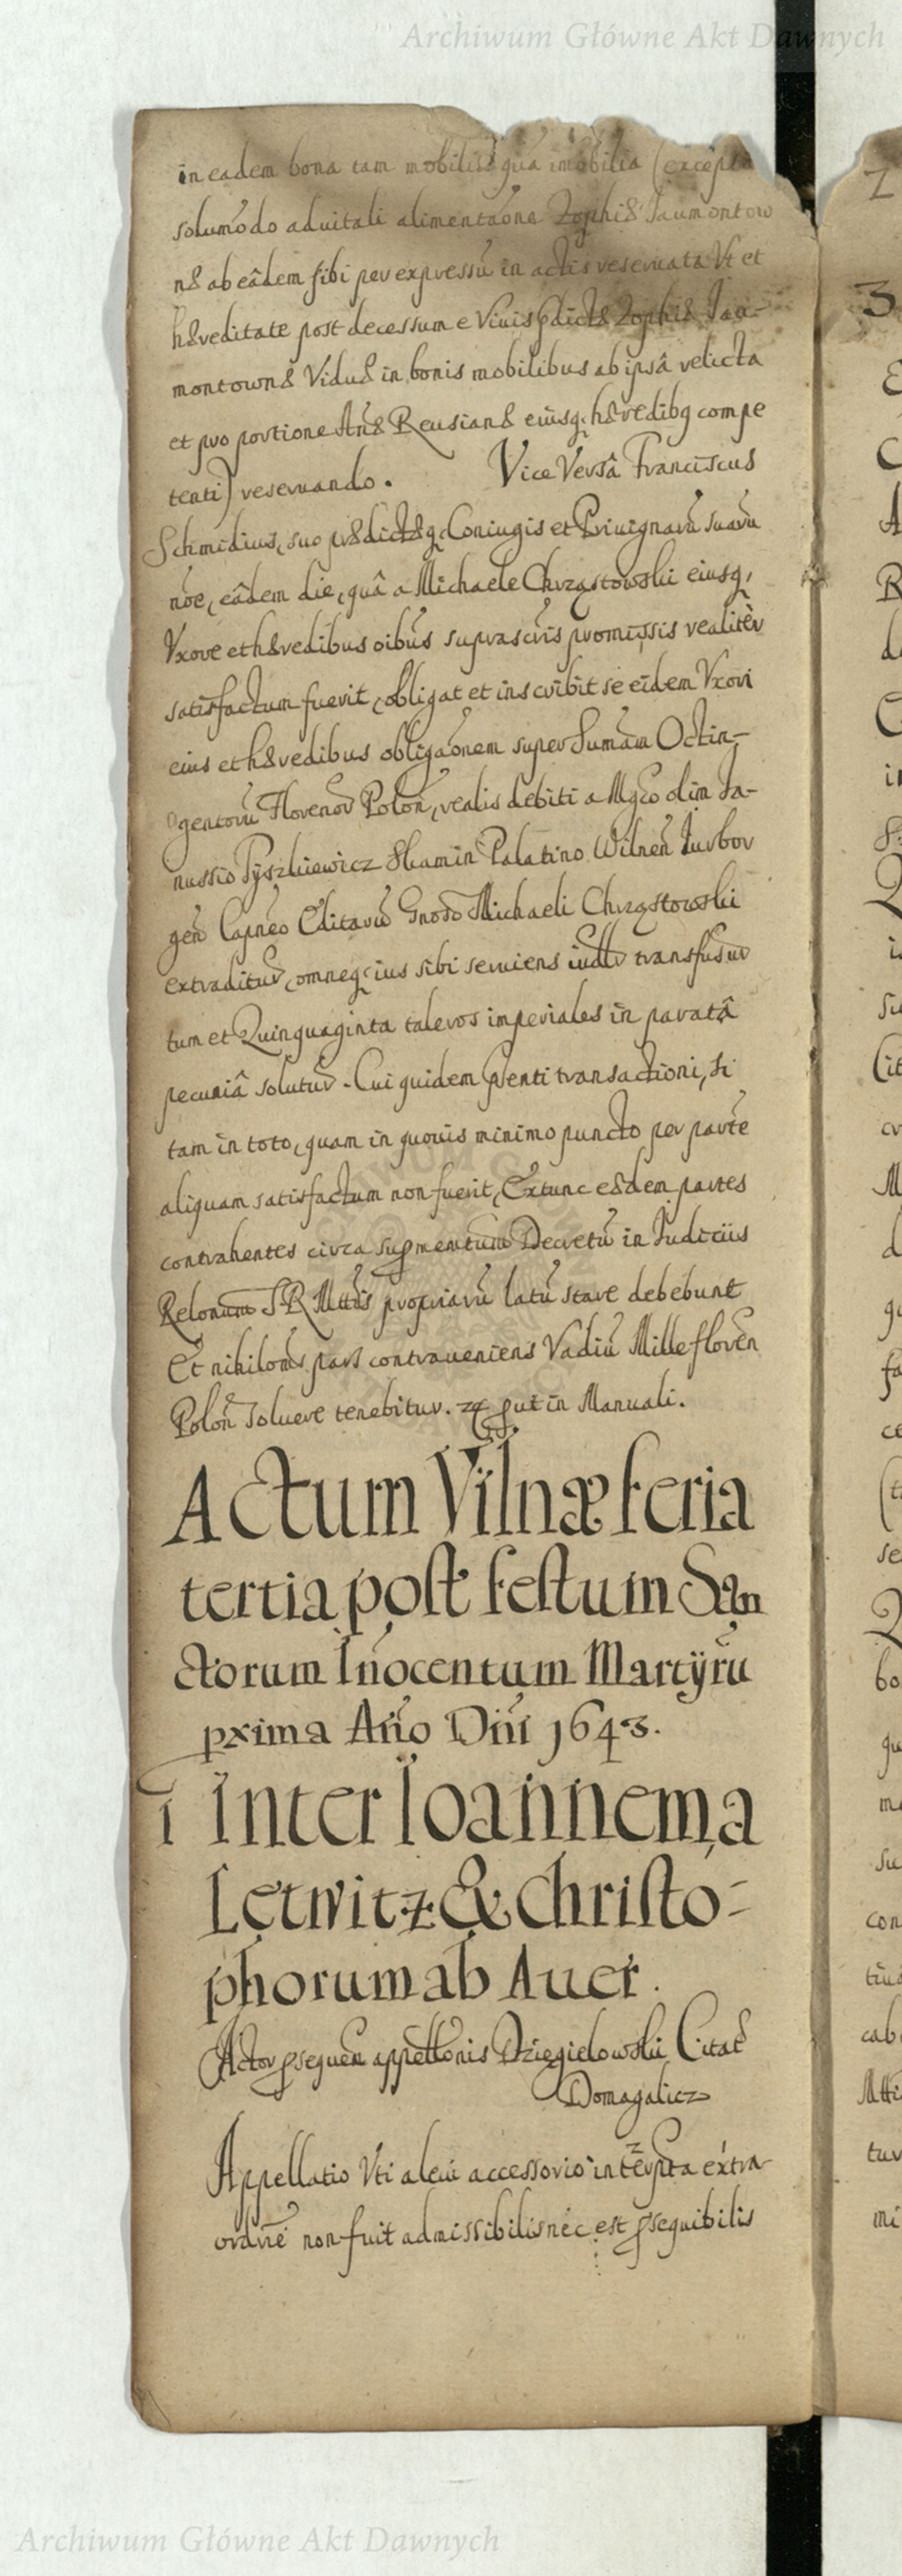 Archiwum Główne Akt Dawnych
in eadem bona tam mobilia quā imobilia (excepta
solumodo aduitali alimentāone Zophiæ Jaumontow
næ ab eâdem sibi per expressū in actis reseruata Vt et
hæreditate post decessum e Viuis pdictæ Zophiæ Jau-
montownæ Viduæ in bonis mobilibus ab ipsâ relicta
et pro portione Añæ Reusianæ eiusq hæredibq compe
tenti) reseruando. Vice Versâ Franciscus
Schmidius, suo prædictæq Coniugis et Priuignarū suarū
nōe, eâdem die, quâ a Michaele Chrząstowski eiusq,
Vxore et hæredibus oibus suprascriis promissis realiter
satisfactum fuerit, obligat et inscribit se eidem Vxori
eius et hæredibus obligāonem super Sumam Octin-
gentorū Florenor Polon, realis debiti a Mgco olim Ja-
nussio Tyszkiewicz Skamin Palatino Wilnen Jurbor
gen Capneo Editarū Gnoso Michaeli Chrząstowski
extraditur, omneq ius sibi seruiens iudlr transfusur
tum et Quinquaginta taleros imperiales in paratâ
pecuniâ solutur. Cui quidem pñti transactioni, si
tam in toto, quam in quouis minimo puncto per parte
aliquam satisfactum non fuerit, Extunc eædem partes
contrahentes circa suprmentum Decretū in Judiciis
Relonum S R Mttis propriarū latū stare debebunt
Et nihilom pars contraueniens Vadiū Mille floren
Polon soluere tenebitur. put in Manuali.
Actum Vilnæ feria
tertia post festum San
ctorum Inocentum Martyrū
pxima Año Dñi 1643.
1 Inter Ioannem a
Letwitz & Christo-
phorum ab Auer.
Actor psequen appellonis Dziegielowski Citat
Domagalicz
Appellatio Vti alcui accessorio interpta extra-
ordarie non fuit admissibilis nec est psequibilis
Archiwum Główne Akt Dawnych